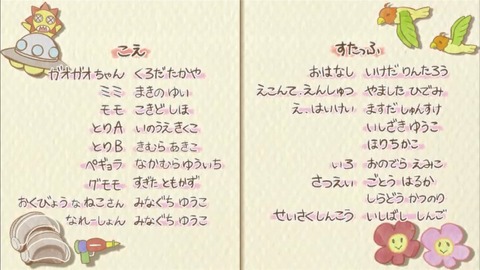 こえ
ガオガオちゃん くろだ たかや
ミミ まきの ゆい
モモ こきど しほ
とりA いのうえ きくこ
とりB きむら あきこ
ペギョラ なかむら ゆういち
グモモ すぎた ともかず
おくびょうな ねこさん みなぐち ゆうこ
なれーしょん みなぐち ゆうこ
すたっふ
おはなし いけだ りんたろう
えこんて．えんしゅつ やました ひでみ
え．はいけい ますだ しゅんすけ
いしざき ゆうこ
ほり ちかこ
いろ おのでら えみこ
さつえい ごとう はるか
しらどう かつのり
せいさくしんこう いしばし しんご